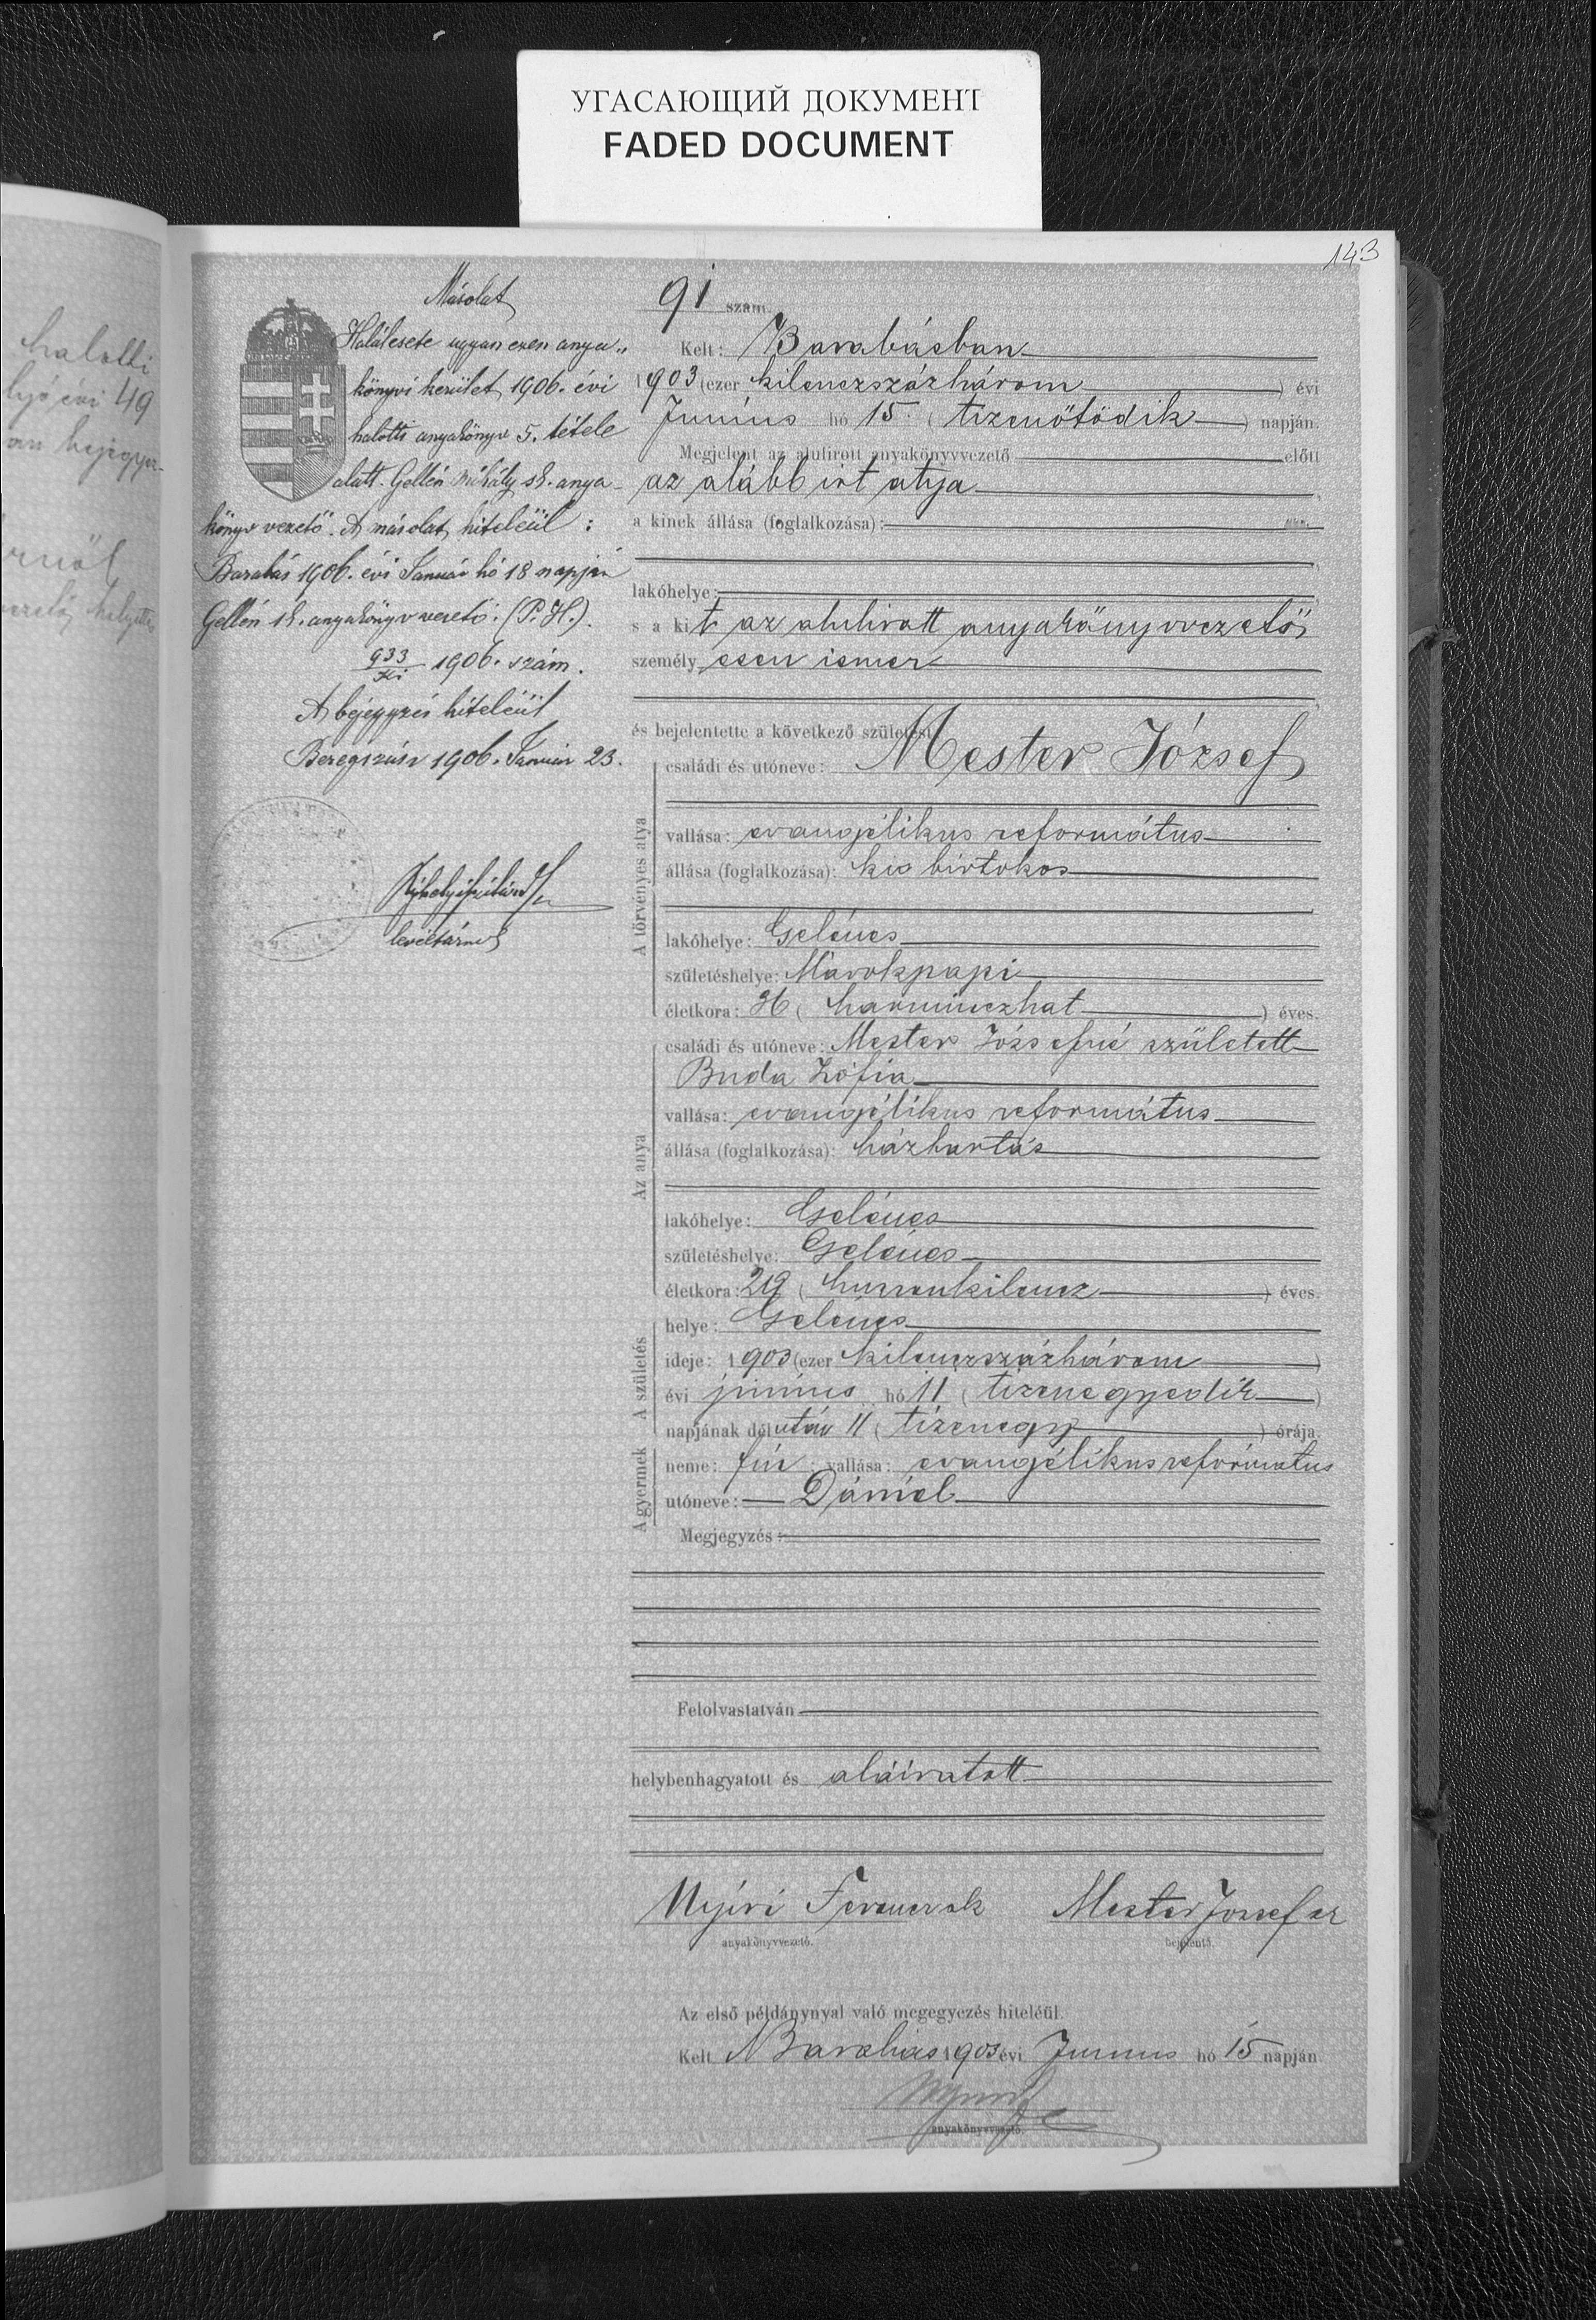 УГАСАЮЩИЙ ДОКУМЕНТ
FADED DOCUMENT
143
halotti
évi 49
Másolat
Halálesete ugyan ezen anya„
könyvi kerület 1906. évi
halotti anyakönyv 5. tétele
alatt. Gellén Mihály sk. anya-
könyv vezető. A másolat hiteléül :
Barabás 1906. évi Január hó 18 napján
Gellén sk. anyakönyvvezető. (P. H.).
933/ki 1906. szám.
A bejegyzés hiteléül
Beregszász 1906. Január 23.
levéltárnok
91 szám.
Kelt: Barabásban
1903 (ezer kilenczszázhárom) évi
Junius hó 15. (tizenötödik) napján.
Megjelent az alulirott anyakönyvvezető előtt
az alább irt atyja
a kinek állása (foglalkozása):
lakóhelye:
s a kit az alulirott anyakönyvvezető
személyesen ismer
és bejelentette a következő születést:
A törvényes atya
családi és utóneve: Mester József
vallása: evangélikus református
állása (foglalkozása): kis birtokos
lakóhelye: Gelénes
születéshelye: Márokpapi
életkora: 36 (harminczhat) éves.
Az anya
családi és utóneve: Mester Józsefné született
Buda Zsófia
vallása: evangélikus református
állása (foglalkozása): házhartás
lakóhelye: Gelénes
születéshelye: Gelénes
életkora: 29 (huszonkilencz) éves.
A születés
helye: Gelénes
ideje: 1903 (ezer kilenczszázhárom)
évi június hó 11 (tizenegyedik)
napjának délután 11 (tizenegy) órája.
A gyermek
neme: fiú; vallása: evangélikus református
utóneve: Dániel
Megjegyzés:
Felolvastatván
helybenhagyatott és aláiratott
Nyíri Ferencz sk Mester József sk
anyakönyvvezető. bejelentő.
Az első példánynyal való megegyezés hiteléül.
Kelt Barabás 1903 évi Junius hó 15 napján
anyakönyvvezető.